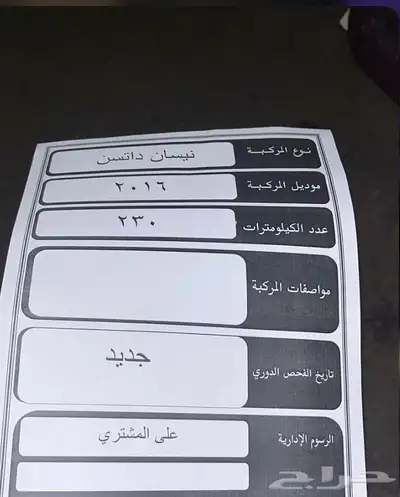 نوع المركبة نيسان داتسن
موديل المركبة ٢٠١٦
عدد الكيلومترات ٢٣٠
مواصفات المركبة
جديد
تاريخ الفحص الدوري
الرسوم الإدارية على المشتري
حراج